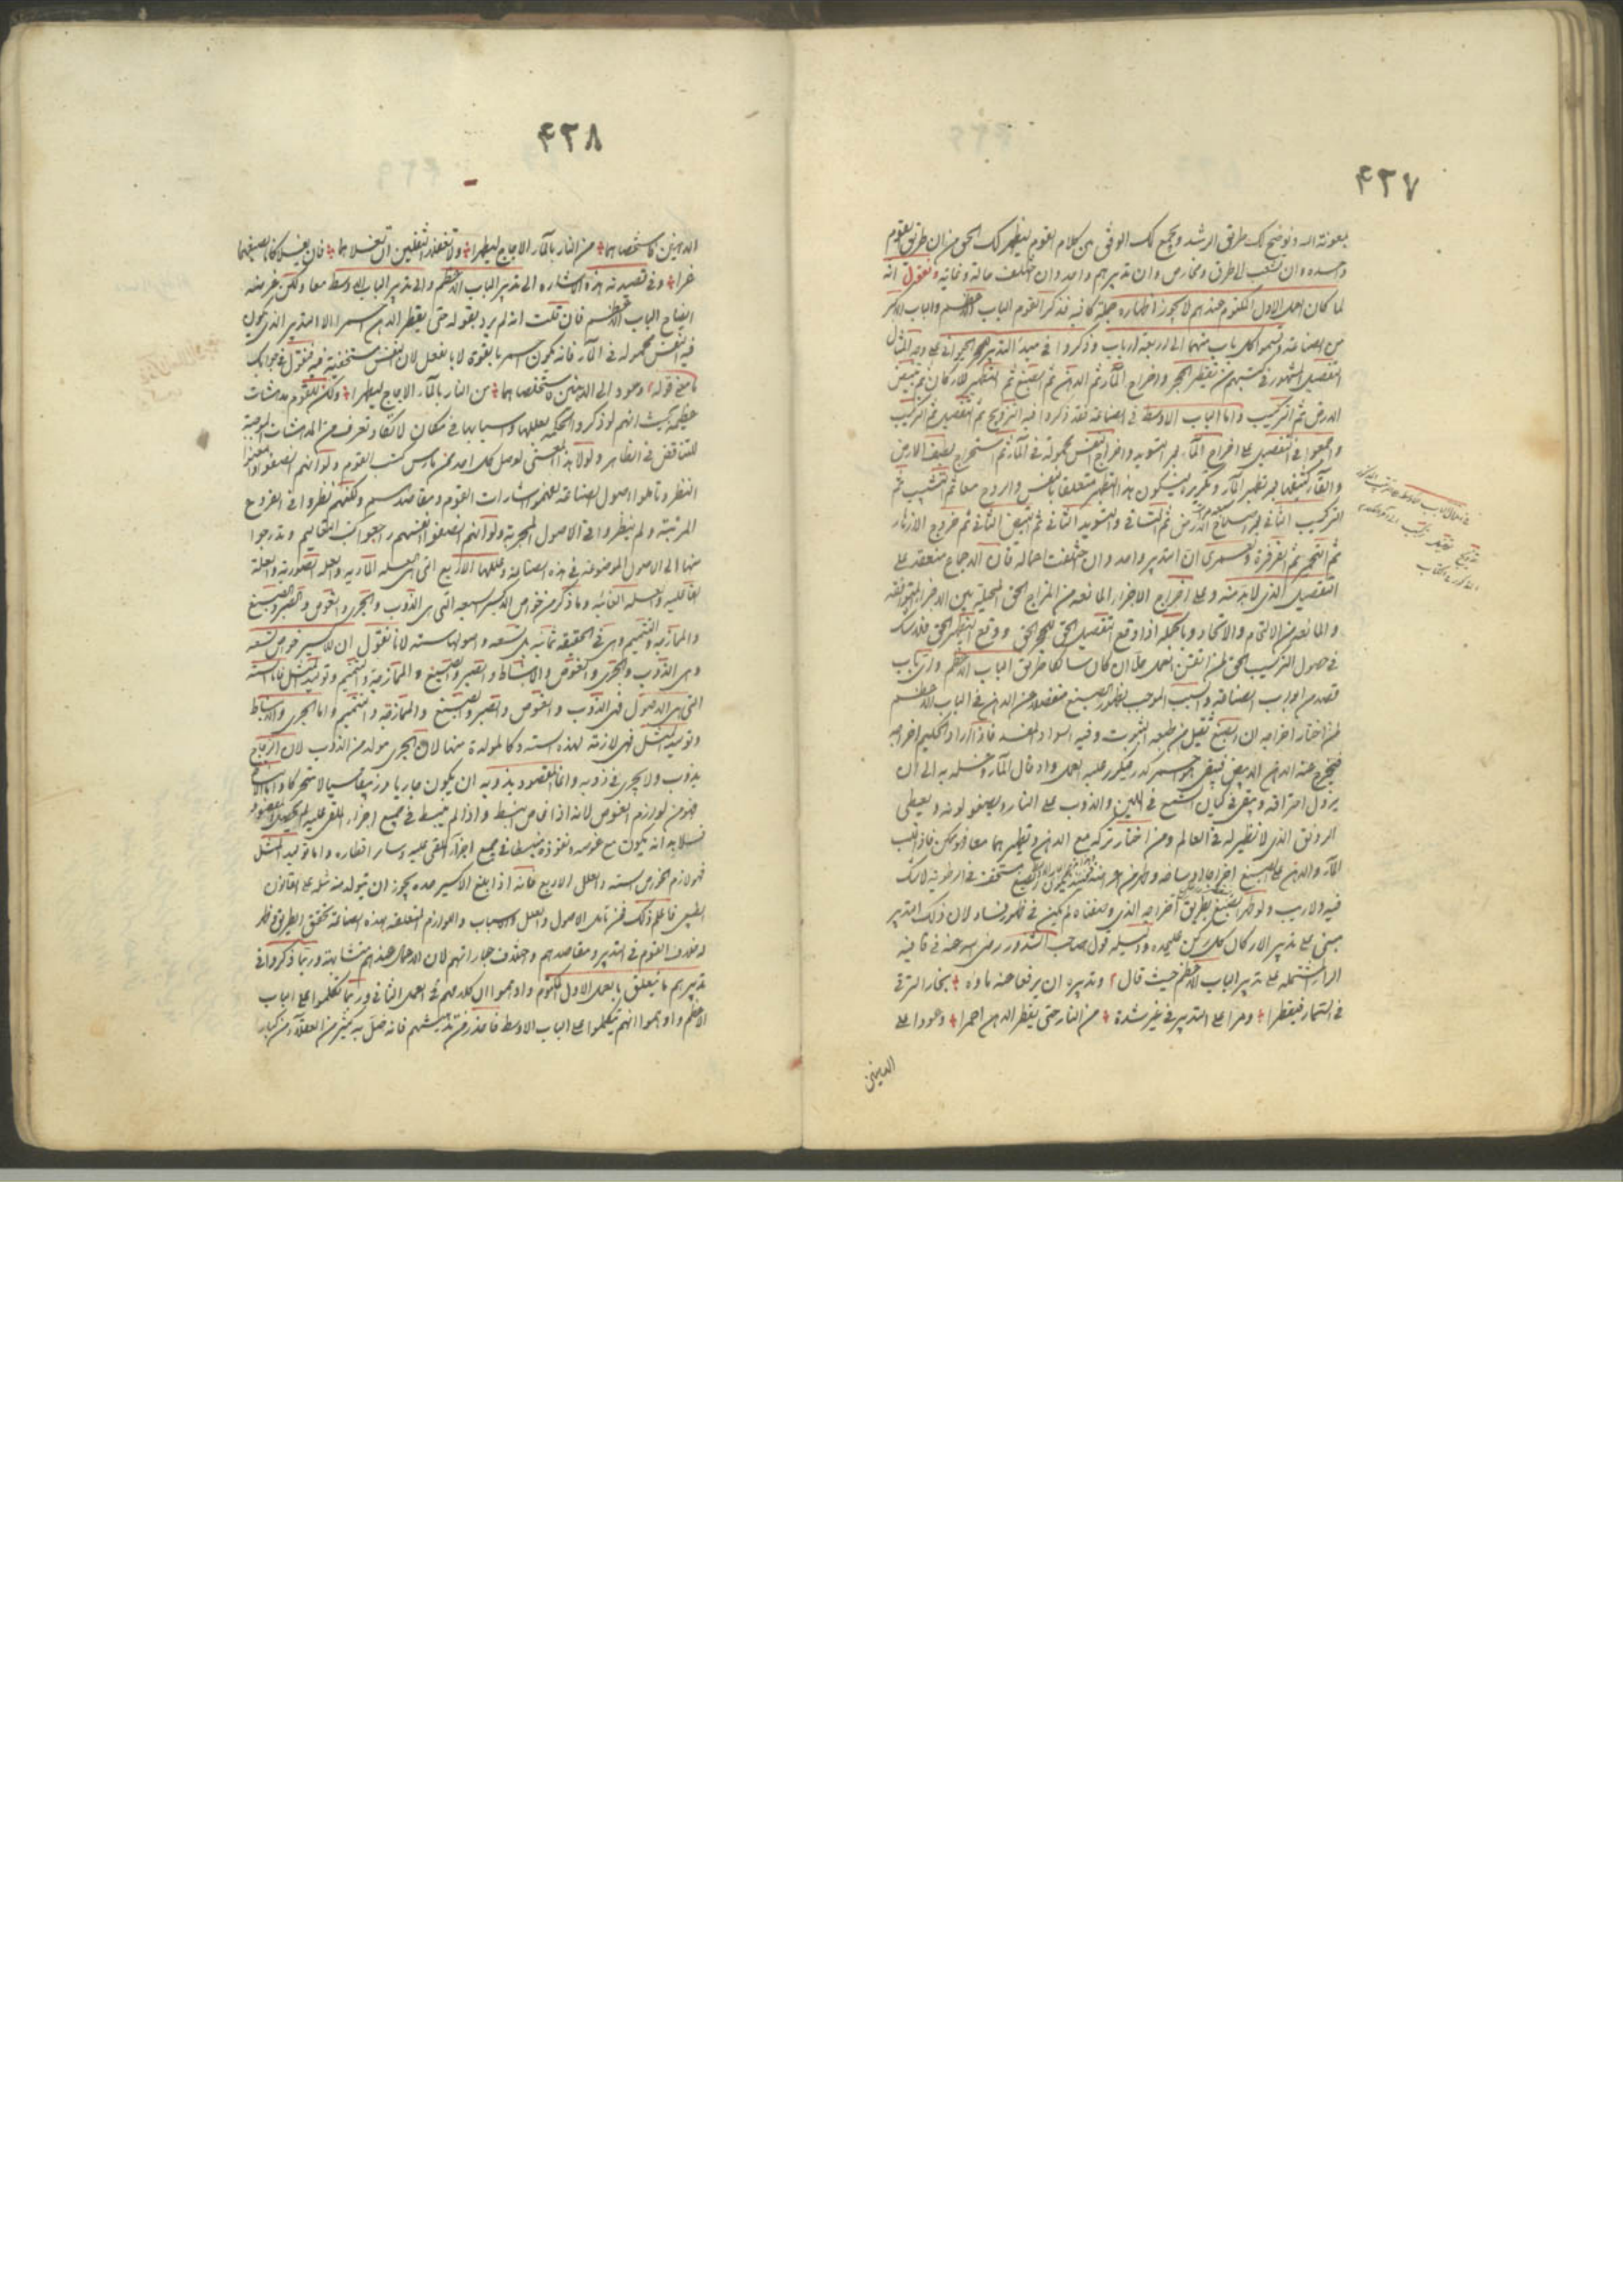 ۴۳۷
بمعونة الله ونوضح لك طرقى الرشد ونجمع لك الوفق من كلام القوم ليظهر لك الحق من ان طريق القوم
واحدة وان تشعب الى طرق ومخارص وان تدبيرهم واحد وان اختلف حالة وغاية ونقول انه
لما كان العمل الاول المكتوم عندهم لا يجوز اظهاره جملة كافية فذكر القوم الباب الاعظم والباب الاكبر
من الصناعة وقسموا كل باب منهما الى اربعة ابواب وذكروا فى مبدأ التدبير الحجر الحيوانى على وجه المثال
التفصيل المشهور فى كتبهم من تقطير الحجر واخراج الماء ثم الدهن ثم الصبغ ثم التطهير للاركان ثم تبييض
الارض ثم التركيب واما الباب الاوسط فى الصناعة فقد ذكروا فيه التزويج ثم التفصيل ثم التركيب
وجمعوا فى التفصيل على اخراج الماء بعد التسويد واخراج النفس محمولة فى الماء ثم استخراج لطيف الارض
والقاء كثيفها بعد تطهير الماء وتكريره ليكون هذا التطهير متعلقا بالنفس والروح معا ثم التشبيب ثم
التركيب الثانى بعد اصلاح الارض ثم التساقى والتسويد الثانى ثم التبييض الثانى ثم خروج الازهار
ثم التحمير ثم الفرفرة ولعمرى ان التدبير واحد وان اختلفت احماله فان الاجماع منعقد على
التفصيل الذى لا بد منه وعلى اخراج الاجزاء المانعة من المزاج الحق المحيلة بين الاجزاء المتوافقة
والمانعة من الالتحام والاتحاد وبالجملة اذا وقع التفصيل الحق للحجر الحق ووقع التطهير الحق فلا شك
فى حصول التركيب الحق لمن اتقن العمل حالا ان كان سالكا طريق الباب الاعظم واى باب
قصد من ابواب الصناعة والسبب الموجب لظهور الصبغ منفصلا عن الدهن فى الباب الاعظم
لمن اختار اخراجه ان الصبغ ثقيل من طبعه الثبوت وفيه السواد المفسد فاذا اراد الحكيم اخراجه
فيخرج عنه الدهن الابيض فيبقى هو جسم كدر فيكرر عليه العمل وادخال الماء وغسله به الى ان
يزول احتراقه ويبقى فى كيان الشمع فى اللين والذوب على النار ويصفو لونه ويعطى
الرونق الذى لا نظير له فى العالم ومن اختار تركه مع الدهن وتطهيرهما معا فهو ممكن فاذا غلب
الماء والدهن على الصبغ اخرجاه اوساخه مستخفية فى الرطوبة لا شك
فيه ولا ريب ولو ظهر الصبغ بطريق اخراجه الذى وصفناه لم يكن فى ظهور فساد لان ذلك التدبير
مبنى على تدبير الاركان كل ركن عليحده والمسئلة قول صاحب الشذور رضى الله عنه فى قافية
الراء المشتملة على تدبير الباب الاعظم حيث قال وتدبيره ان يرفعا عنه ماؤه بنجار الترقى
فى استمار فيقطرا ومرا على التدبير فى غير شدة من النار حتى يقطر الدهن احمرا وعودا على
الدهنين
۴۳۸
الدهنين فاستخلصاهما من النار بالماء الاجاج ليطهرا ولا تغفلا الثفلين ان تغسلاهما فان يغسلا كانا لصبغهما
غرا وفى قصيدته هذه الاشارة الى تدبير الباب الاعظم والى تدبير الباب الاوسط معا ولكن غرضه
ايضاح الباب الاعظم فان قلت انه لم يرد بقوله حتى يقطر الدهن احمرا الا التدبير الذى تكون
فيه النفس محمولة فى الماء فانه يكون احمرا بالقوة لا بالفعل لان النفس مستخفية فيه فنقول فى جوابك
ما معنى قوله وعودا الى الدهنين فاستخلصاهما من النار بالماء الاجاج ليطهرا ولكن للقوم مدهشات
عظيمة بحيث انهم لو ذكروا الحكمة بعللها واسبابها فى مكان لا تكاد تعرف من المدهشات الموجبة
للتناقض فى الظاهر ولولا هذا المعنى لوصل كل احد ممن مارس كتب القوم ولو انهم انصفوا وامعنوا
النظر وتأملوا اصول الصناعة لعلموا اشارات القوم ومقاصدهم ولكنهم نظروا فى الفروع
المرتبة ولم ينظروا فى الاصول المجربة ولو انهم انصفوا انفسهم راجعوا كتب التعاليم وتدرجوا
منها الى الاصول الموضوعة فى هذه الصناعة وعللها الاربع التى هى العلة المادية والعلة الصورية والعلة
الفاعلية والعلة الغائية وما ذكر من خواص الاكسير السبعة التى هى الذوب والجرى والغوص والصبر والصبغ
والممازجة والتتميم وهى فى الحقيقة ثمانية بل تسعة واصولها ستة لانا نقول ان للاكسير خواص تسعة
وهى الذوب والجرى والغوص والانبساط والصبر والصبغ والممازجة والتتميم وتوليد المثل فاما الستة
التى هى الاصول فهى الذوب والغوص والصبر والصبغ والممازجة والتتميم واما الجرى والانبساط
وتوليد المثل فهى لازمة لهذه الستة وكالمولدة منها لان الجرى مولد من الذوب لان الزجاج
يذوب ولا يجرى فى ذوبه وانما المقصود بذوبه ان يكون جاريا وزيبقا سيالا متحركا واما الانبساط
فهو من لوازم الغوص لانه اذا غاص انبسط واذا لم ينبسط فى جميع اجزاء الملقى عليه لم يحصل المقصود
فلا بد انه يكون مع غوصه ونفوذه منبسطا فى جميع اجزاء الملقى عليه وسائر اقطاره واما توليد المثل
فهو لازم الخواص الستة والعلل الاربع فانه اذا بلغ الاكسير حده يجوز ان يتولد منه مثله على القانون
الطبيعى فاعلم ذلك فمن تأمل الاصول والعلل والاسباب واللوازم المتعلقة بهذه الصناعة تحقق الطريق وظهر
له خلاف القوم فى التدبير ومقاصدهم واختلاف عباراتهم لان الاعمال عندهم متشابهة وربما ذكروا فى
تدبيرهم ما يتعلق بالعمل الاول المكتوم واوهموا ان كلامهم فى العمل الثانى وربما تكلموا على الباب
الاعظم واوهموا انهم تكلموا على الباب الاوسط فاحذر من تدهيشهم فانه ضل به كثير من العقلاء من كبار